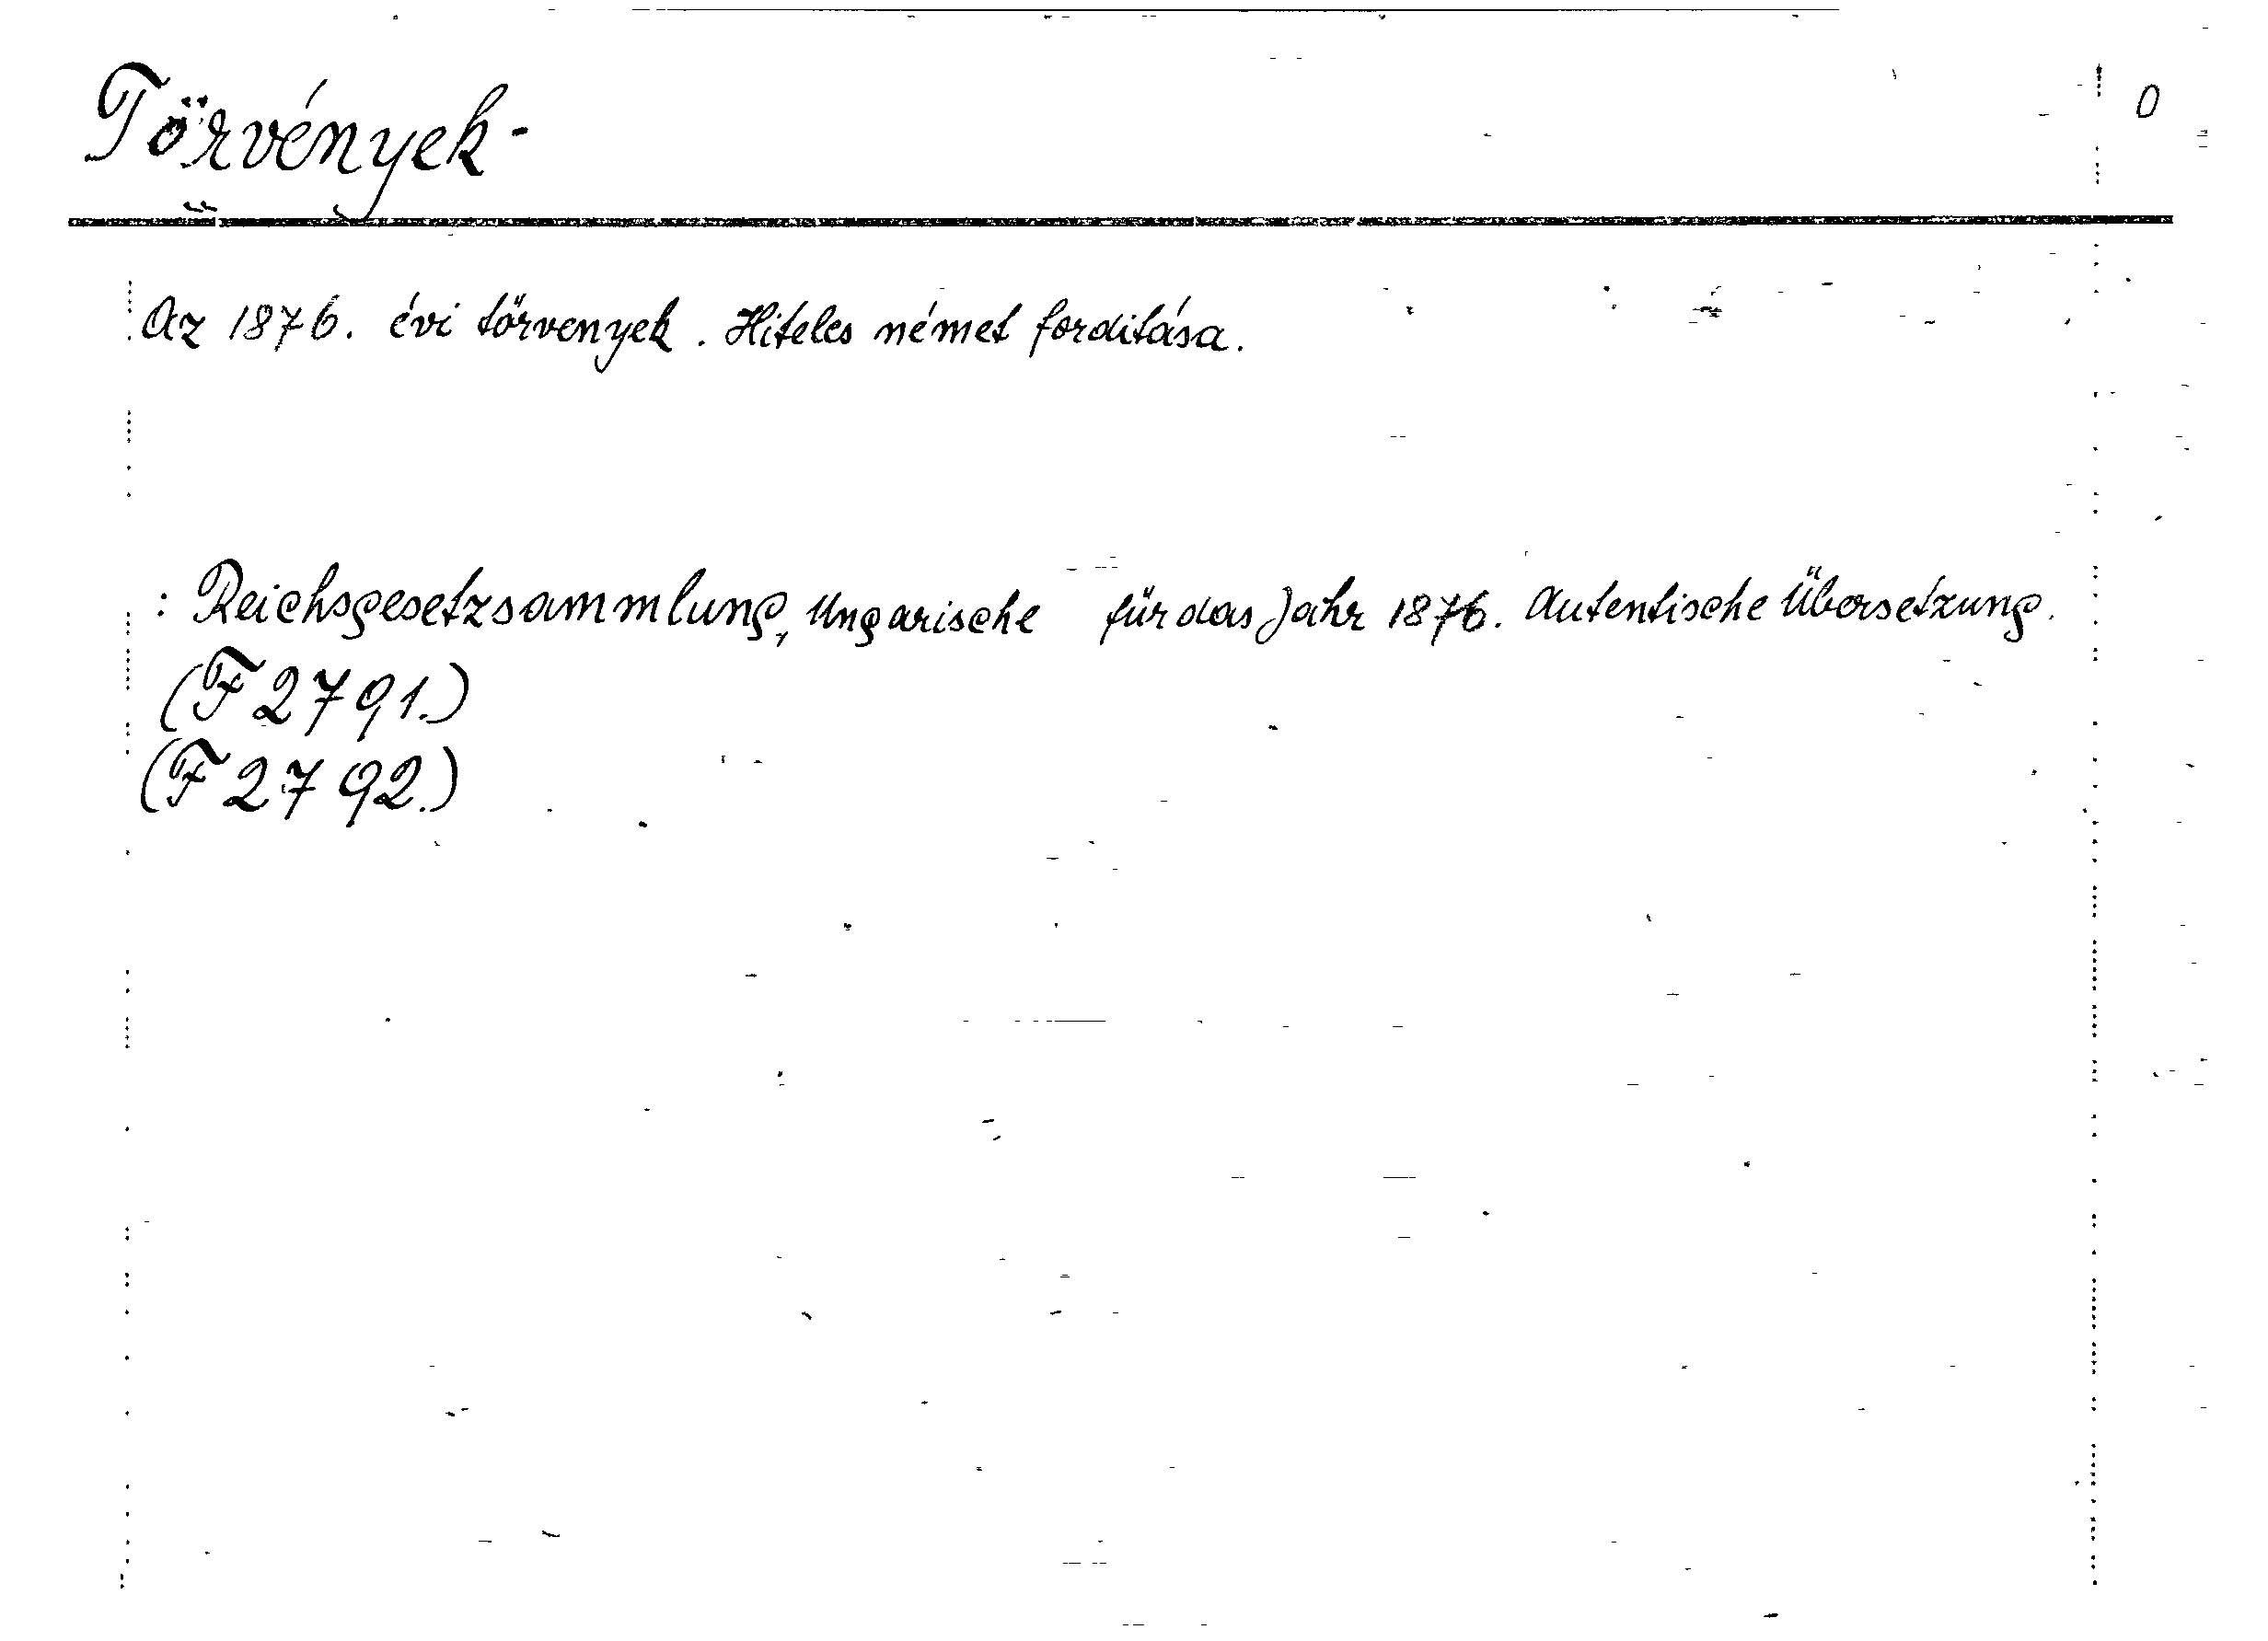 Törvények-
0
Az 1876. évi törvenyek. Hiteles német forditása.
: Reichsgesetzsammlung, Ungarische für das Jahr 1876. Autentische Übersetzung.
(F 2791.)
(F 2792.)